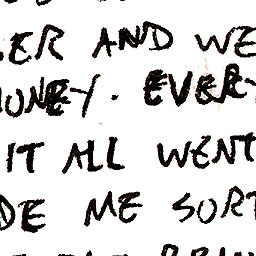 ER AND WE
ONEY. EVERY
IT ALL WENT
DE ME SORT